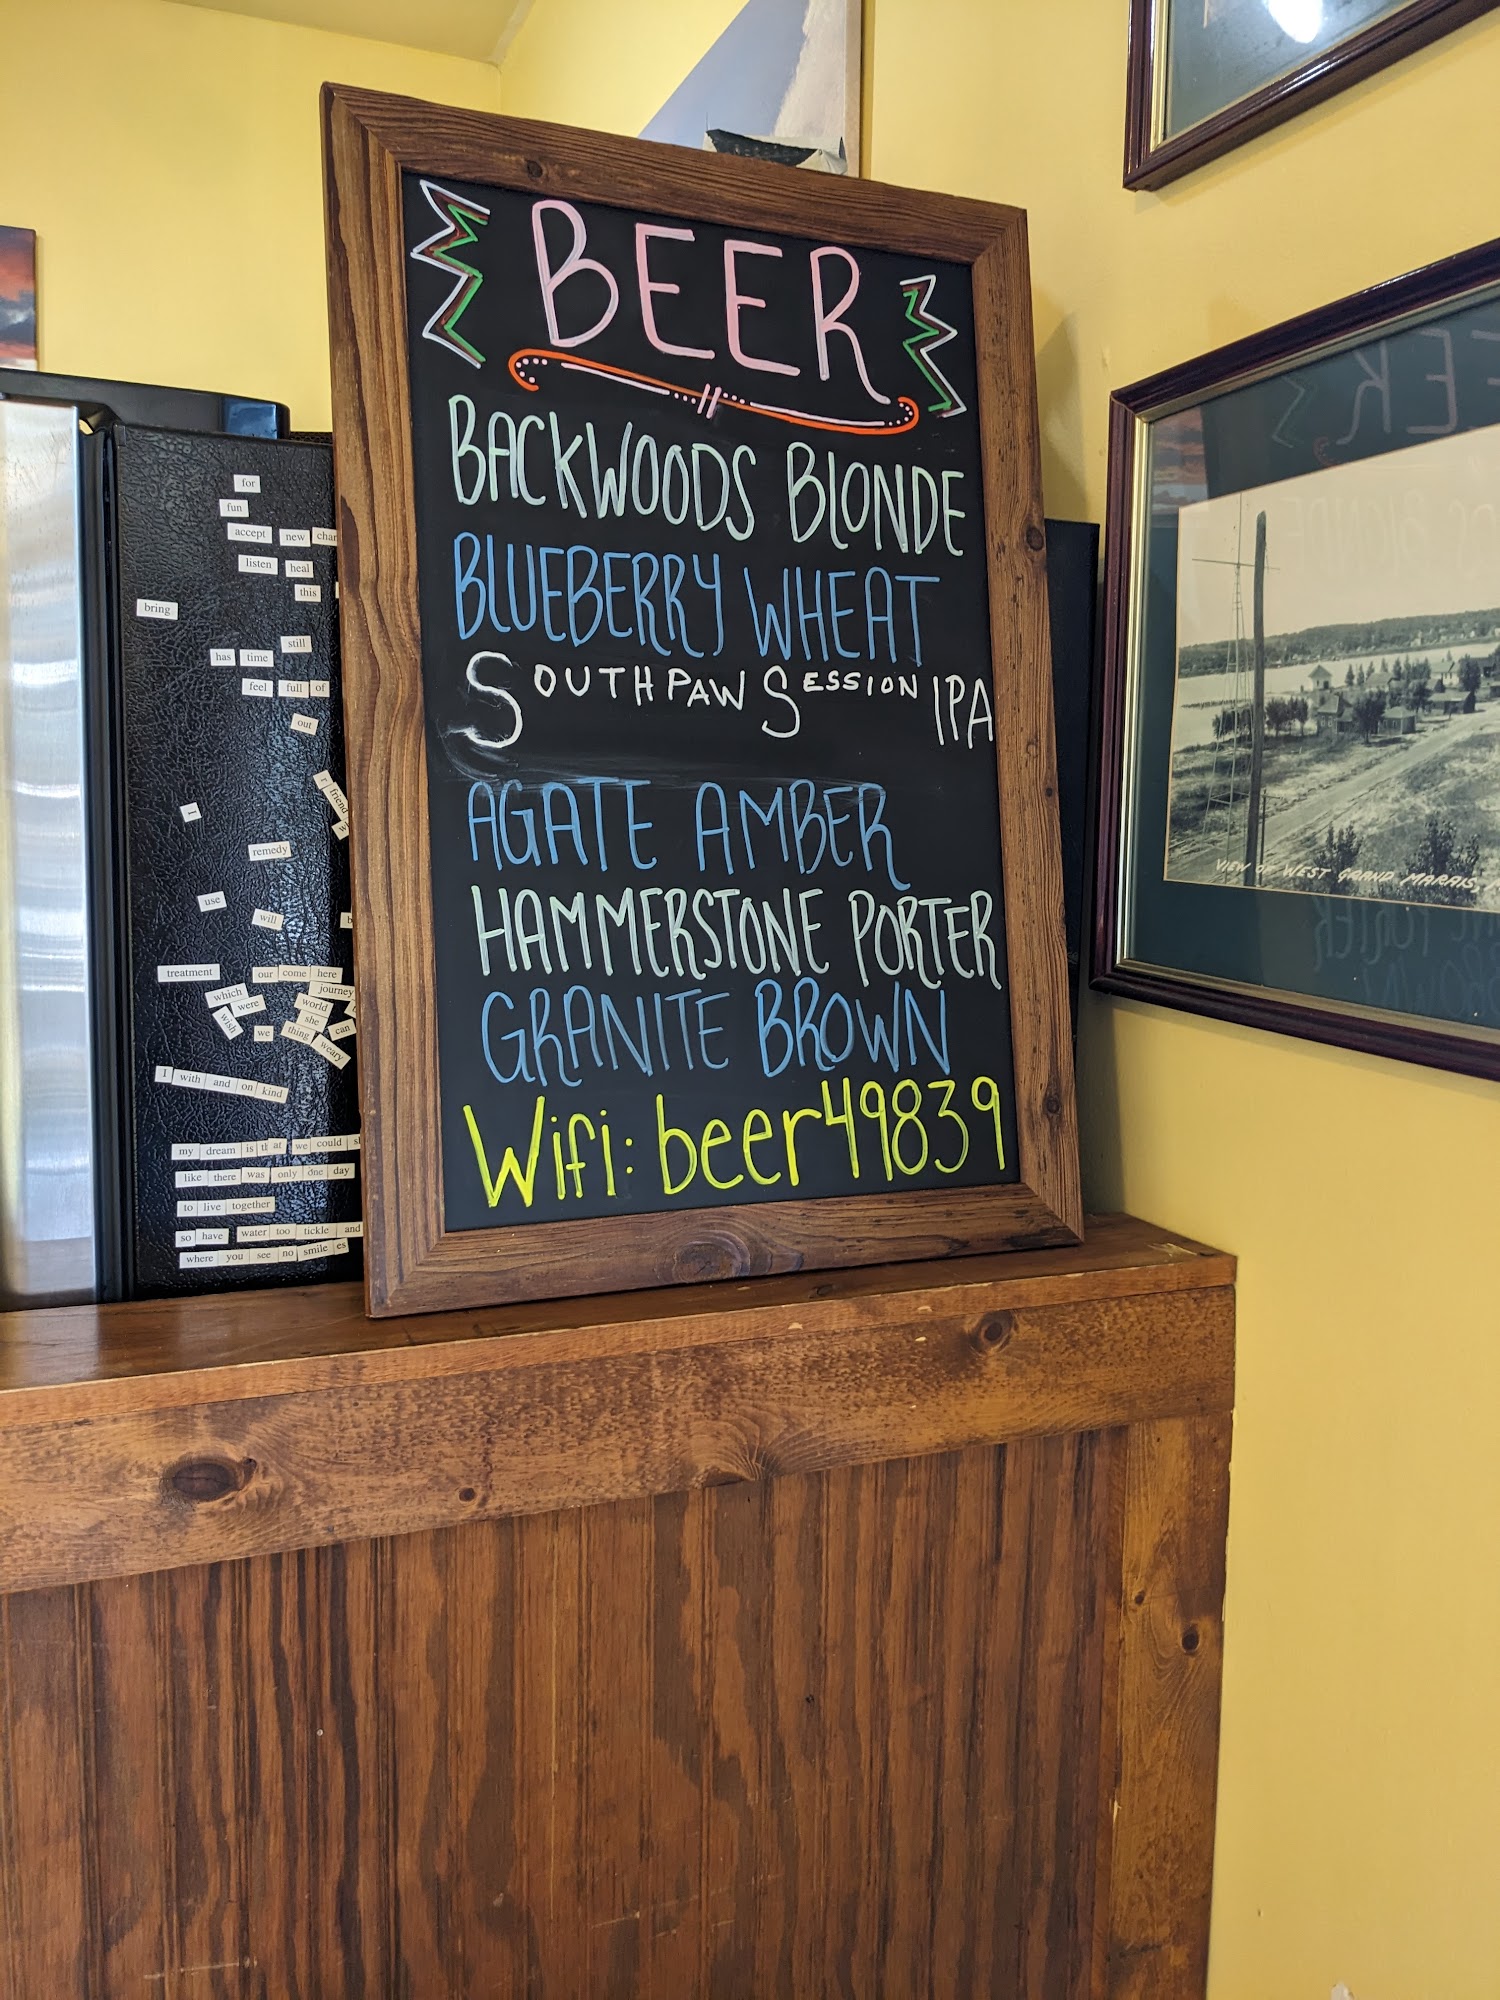 BEER
BACKWOODS BLONDE
BLUEBERRY WHEAT
SOUTHPAW SESSION IPA
AGATE AMBER
HAMMERSTONE PORTER
GRANITE BROWN
Wifi: beer49839
for
fun
accept new
listen heal
this
bring
still
has time
feel full of
out
I
friend
remedy
use
will
treatment
our come here
which
journey
were
world
wish
she
we
thing
can
weary
I with and on kind
my dream is th at we could
like there was only one day
to live together
so have water too tickle and
where you see no smile es
VIEW OF WEST GRAND MARAIS,